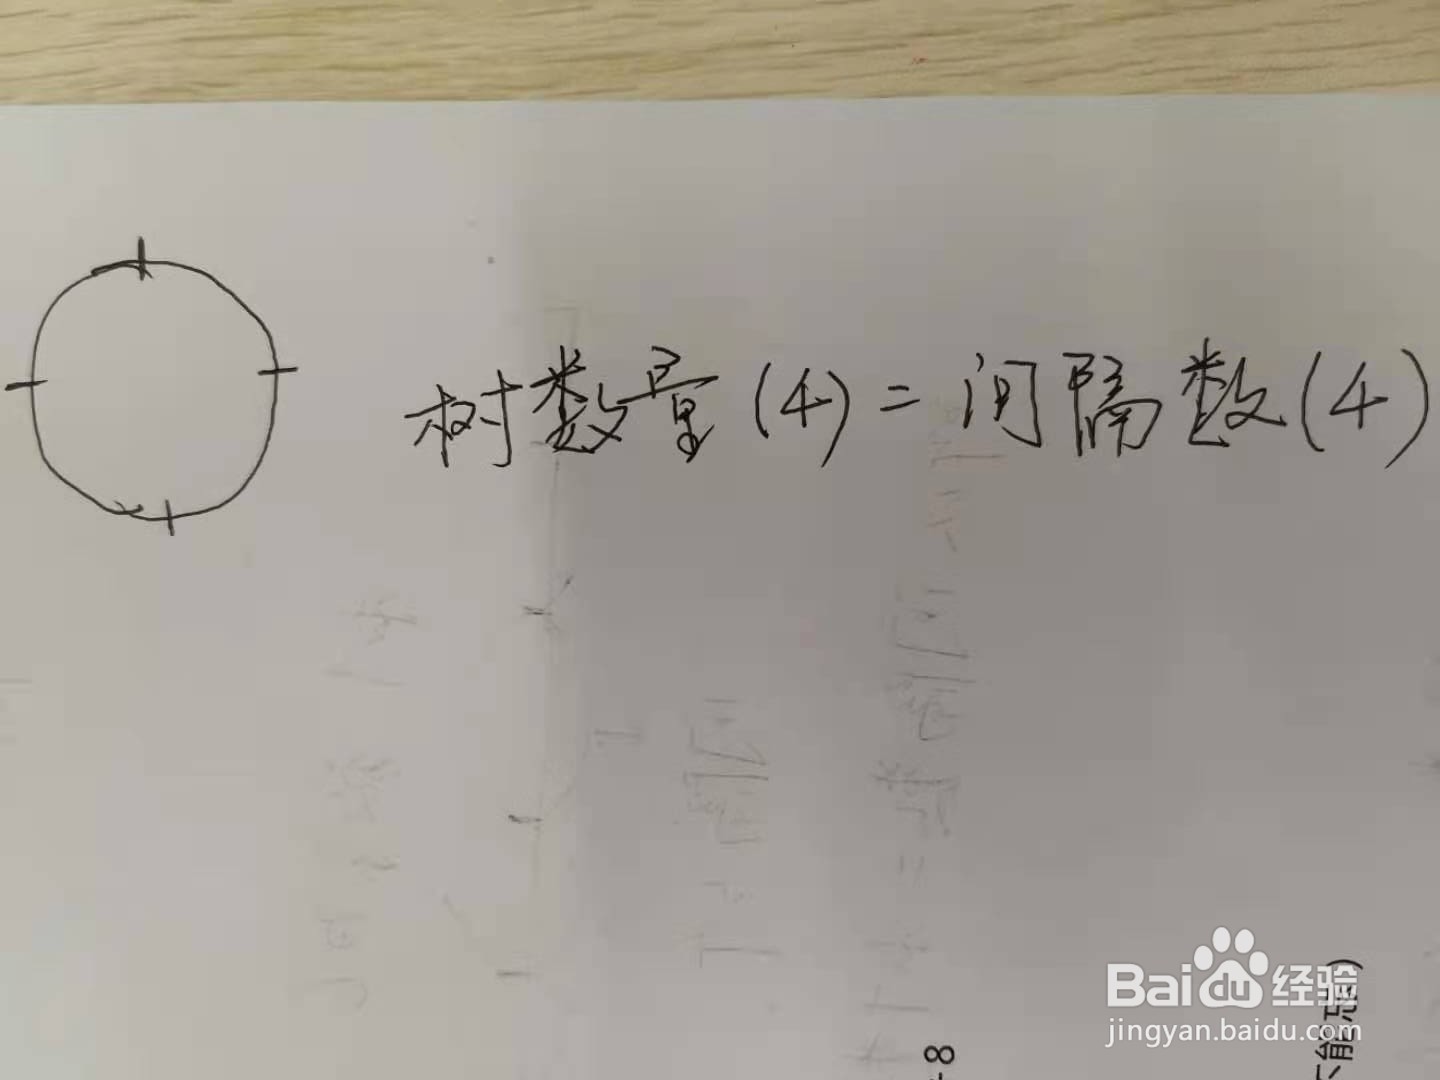 树数量(4)=间隔数(4)
Baidu经验
jingyan.baidu.com
8